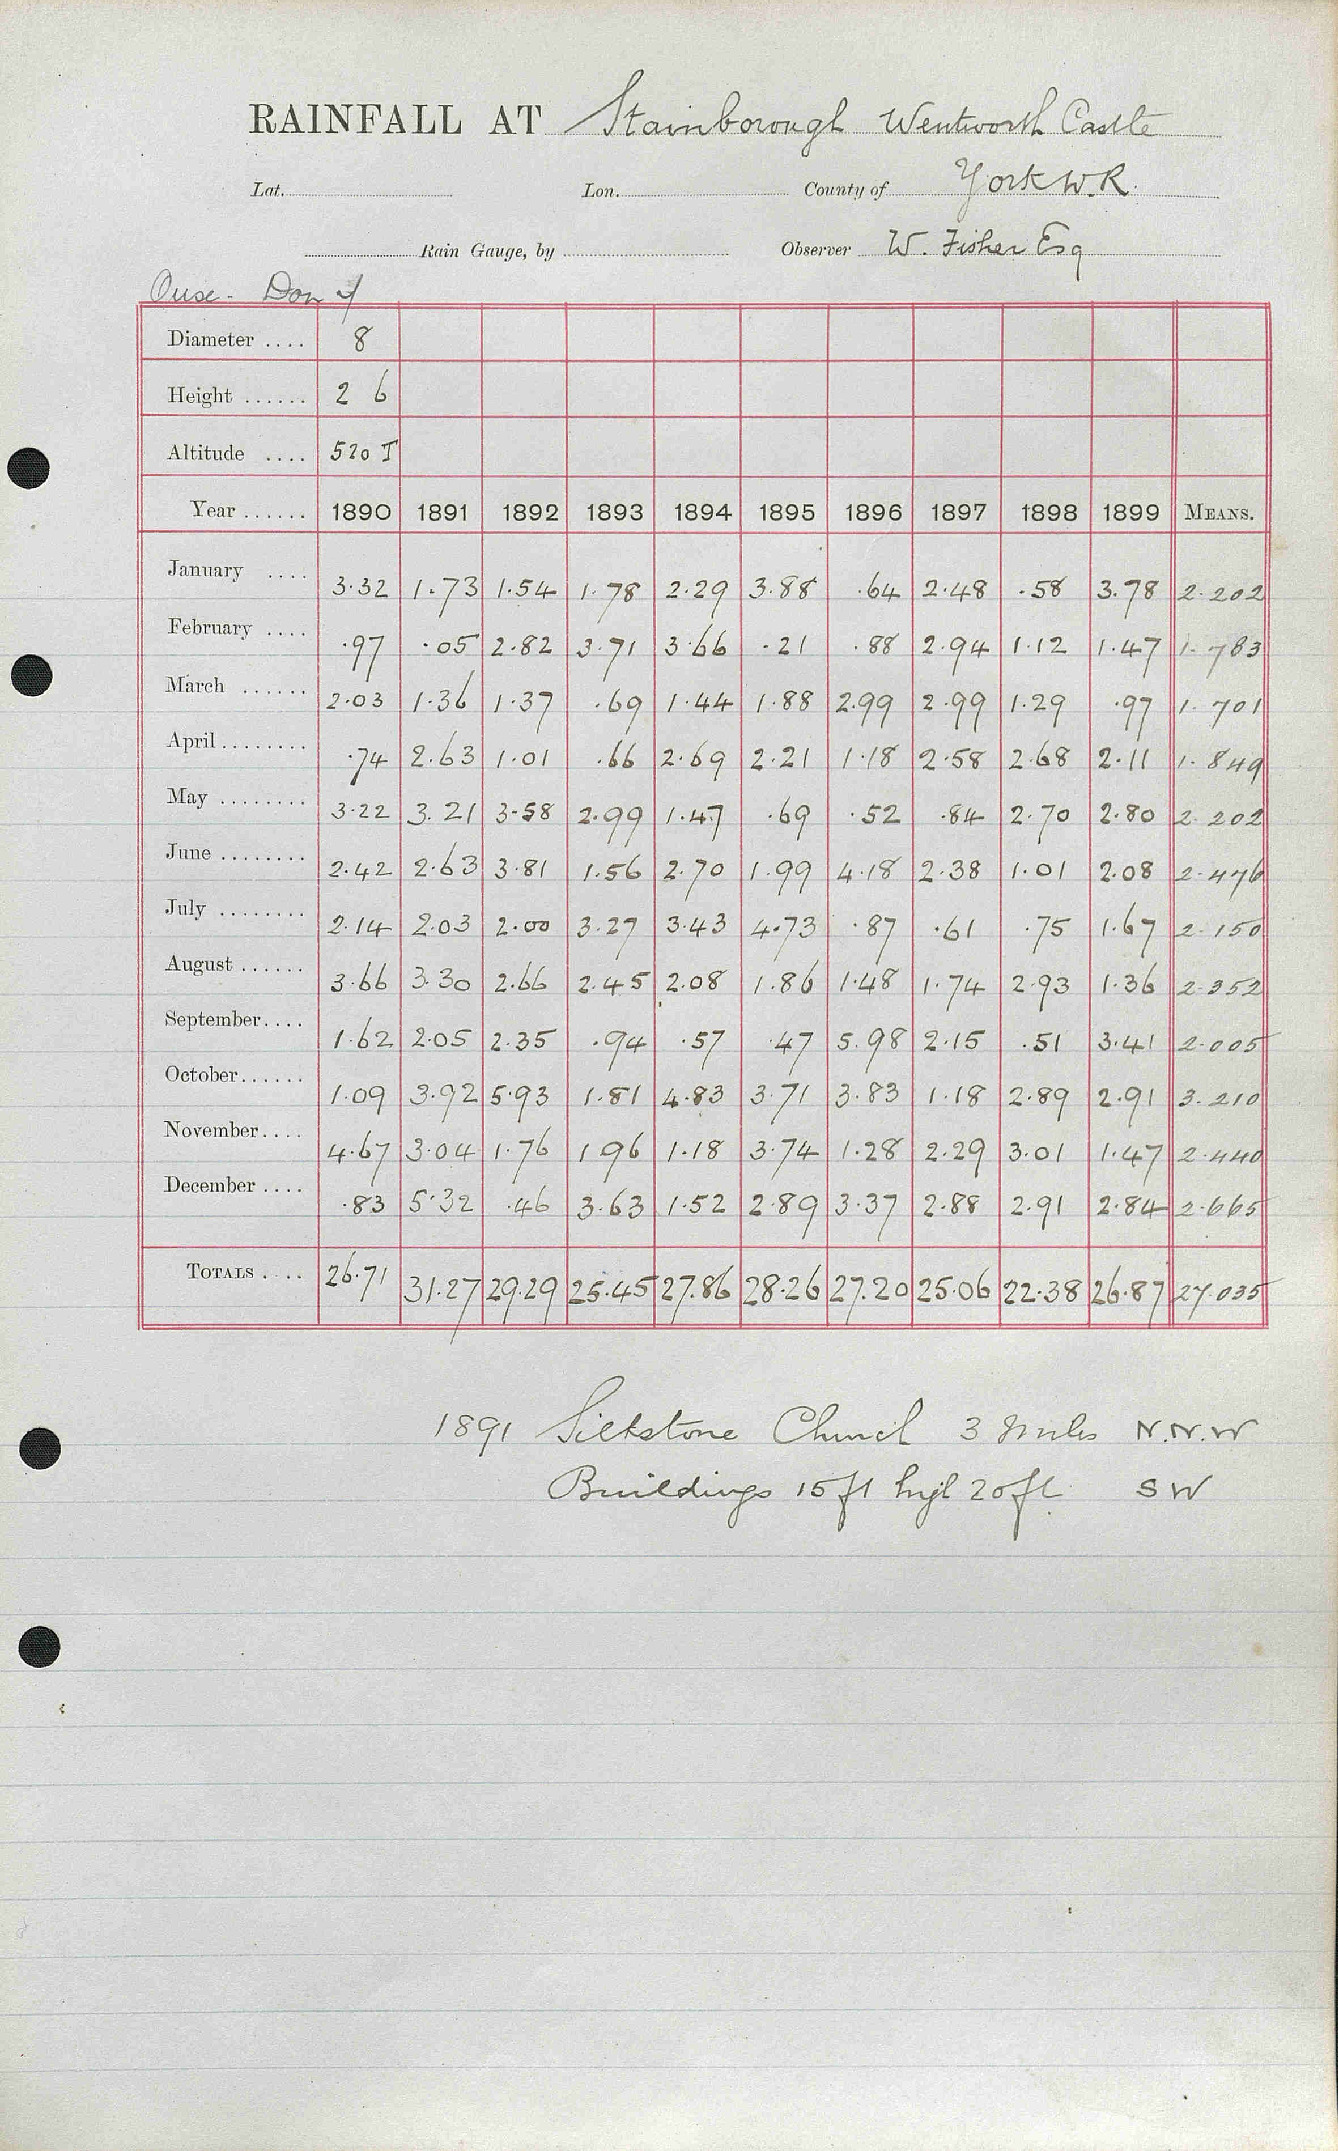 RAINFALL AT Stainborough Wentworth Castle
Lat. Lon. County of York W.R.
Rain Gauge, by Observer W. Fisher Esq
Ouse - Don
Diameter .... 8
Height ...... 2 6
Altitude .... 520 T
Year ...... 1890 1891 1892 1893 1894 1895 1896 1897 1898 1899 MEANS.
January .... 3.32 1.73 1.54 1.78 2.29 3.88 .64 2.48 .58 3.78 2.202
February .... .97 .05 2.82 3.71 3.66 .21 .88 2.94 1.12 1.47 1.783
March ...... 2.03 1.36 1.37 .69 1.44 1.88 2.99 2.99 1.29 .97 1.701
April ........ .74 2.63 1.01 .66 2.69 2.21 1.18 2.58 2.68 2.11 1.849
May ........ 3.22 3.21 3.58 2.99 1.47 .69 .52 .84 2.70 2.80 2.202
June ........ 2.42 2.63 3.81 1.56 2.70 1.99 4.18 2.38 1.01 2.08 2.476
July ........ 2.14 2.03 2.00 3.27 3.43 4.73 .87 .61 .75 1.67 2.150
August ...... 3.66 3.30 2.66 2.45 2.08 1.86 1.48 1.74 2.93 1.36 2.352
September.... 1.62 2.05 2.35 .94 .57 .47 5.98 2.15 .51 3.41 2.005
October...... 1.09 3.92 5.93 1.81 4.83 3.71 3.83 1.18 2.89 2.91 3.210
November.... 4.67 3.04 1.76 1.96 1.18 3.74 1.28 2.29 3.01 1.47 2.440
December .... .83 5.32 .46 3.63 1.52 2.89 3.37 2.88 2.91 2.84 2.665
TOTALS .... 26.71 31.27 29.29 25.45 27.86 28.26 27.20 25.06 22.38 26.87 27.035
1891 Silkstone Church 3 Miles N.N.W
Buildings 15ft high 20ft. SW